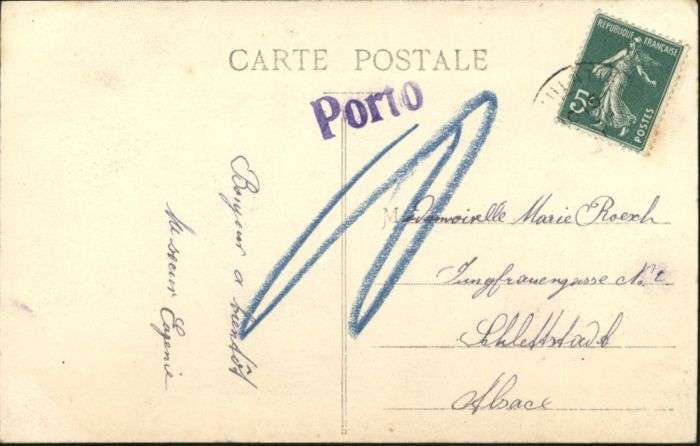 CARTE POSTALE
Porto
RÉPUBLIQUE FRANÇAISE
5
POSTES
Bonjour a bientôt
Ma soeur Eugenie
Mademoiselle Marie Roesch
Jungfrauengasse No
Schlettstadt
Alsace